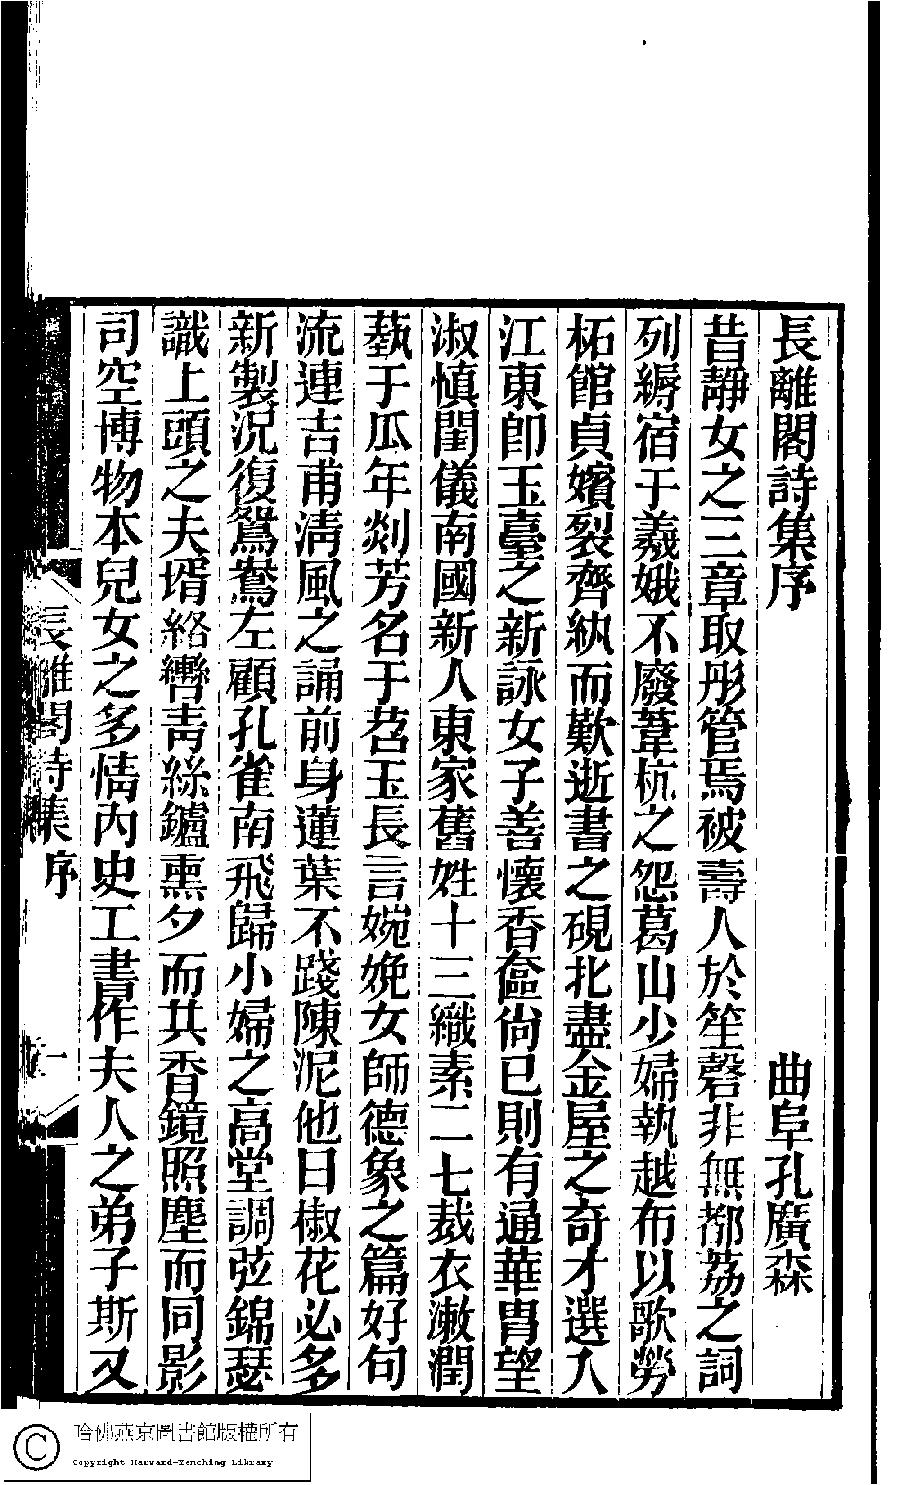 長離閣詩集序
曲阜孔廣森
昔靜女之三章取彤管焉被壽人於笙磬非無都荔之詞
列縟宿于羲娥不廢葦杭之怨葛山少婦執越布以歌勞
柘館貞嬪裂齊紈而歎逝書之硯北盡金屋之奇才選入
江東卽玉臺之新詠女子善懷香奩尙已則有通華胄望
淑愼閨儀南國新人東家舊姓十三織素二七裁衣漱潤
蓺于瓜年剡芳名于苕玉長言婉娩女師德象之篇好句
流連吉甫淸風之誦前身蓮葉不踐陳泥他日椒花必多
新製況復鴛鴦左顧孔雀南飛歸小婦之高堂調弦錦瑟
識上頭之夫壻絡轡靑絲鑪熏夕而共香鏡照塵而同影
司空博物本兒女之多情內史工書作夫人之弟子斯又
長離閣詩集 序
一
哈佛燕京圖書館版權所有
Copyright Harvard-Yenching Library